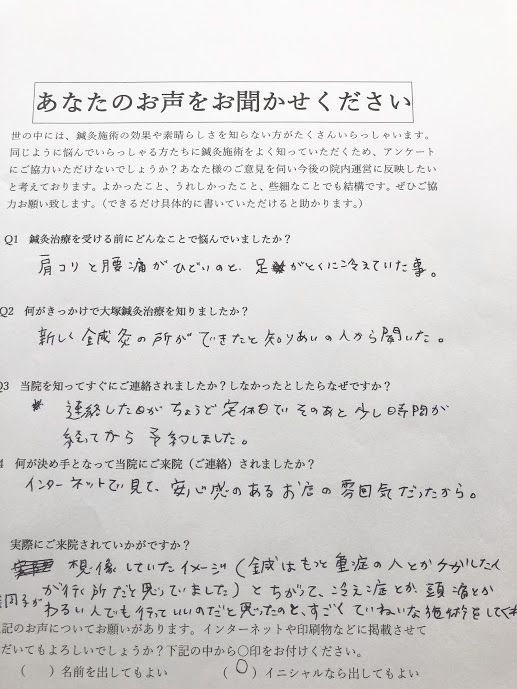 あなたのお声をお聞かせください
世の中には、鍼灸施術の効果や素晴らしさを知らない方がたくさんいらっしゃいます。
同じように悩んでいらっしゃる方たちに鍼灸施術をよく知っていただくため、アンケート
にご協力いただけないでしょうか？あなた様のご意見を伺い今後の院内運営に反映したい
と考えております。よかったこと、うれしかったこと、些細なことでも結構です。ぜひご協
力お願い致します。（できるだけ具体的に書いていただけると助かります。）
Q1 鍼灸治療を受ける前にどんなことで悩んでいましたか？
肩コリと腰痛がひどいのと、足がとくに冷えていた事。
Q2 何がきっかけで大塚鍼灸治療を知りましたか？
新しく鍼灸の所ができたと知りあいの人から聞いた。
Q3 当院を知ってすぐにご連絡されましたか？しなかったとしたらなぜですか？
連絡した日がちょうど定休日でそのあと少し時間が
経ってから予約しました。
4 何が決め手となって当院にご来院（ご連絡）されましたか？
インターネットで見て、安心感のあるお店の雰囲気だったから。
実際にご来院されていかがですか？
想像していたイメージ（鍼はもっと重症の人とかケガした人
が行く所だと思っていました）とちがって、冷え症とか、頭痛とか
わるい人でも行っていいのだと思ったのと、すごくていねいな施術をしてくれ
記のお声についてお願いがあります。インターネットや印刷物などに掲載させて
だいてもよろしいでしょうか？下記の中から○印をお付けください。
（ ）名前を出してもよい （○）イニシャルなら出してもよい